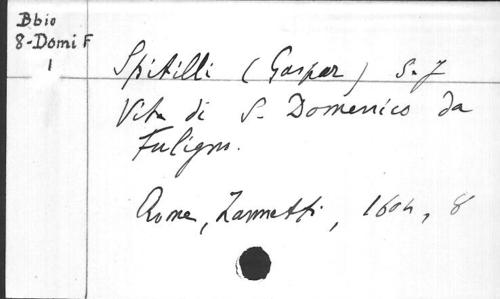 Bbio
8-Domi F
1
Spitilli (Gaspar) S. J
Vita di S. Domenico da
Fuligno.
Rome, Zannetti, 1604, 8